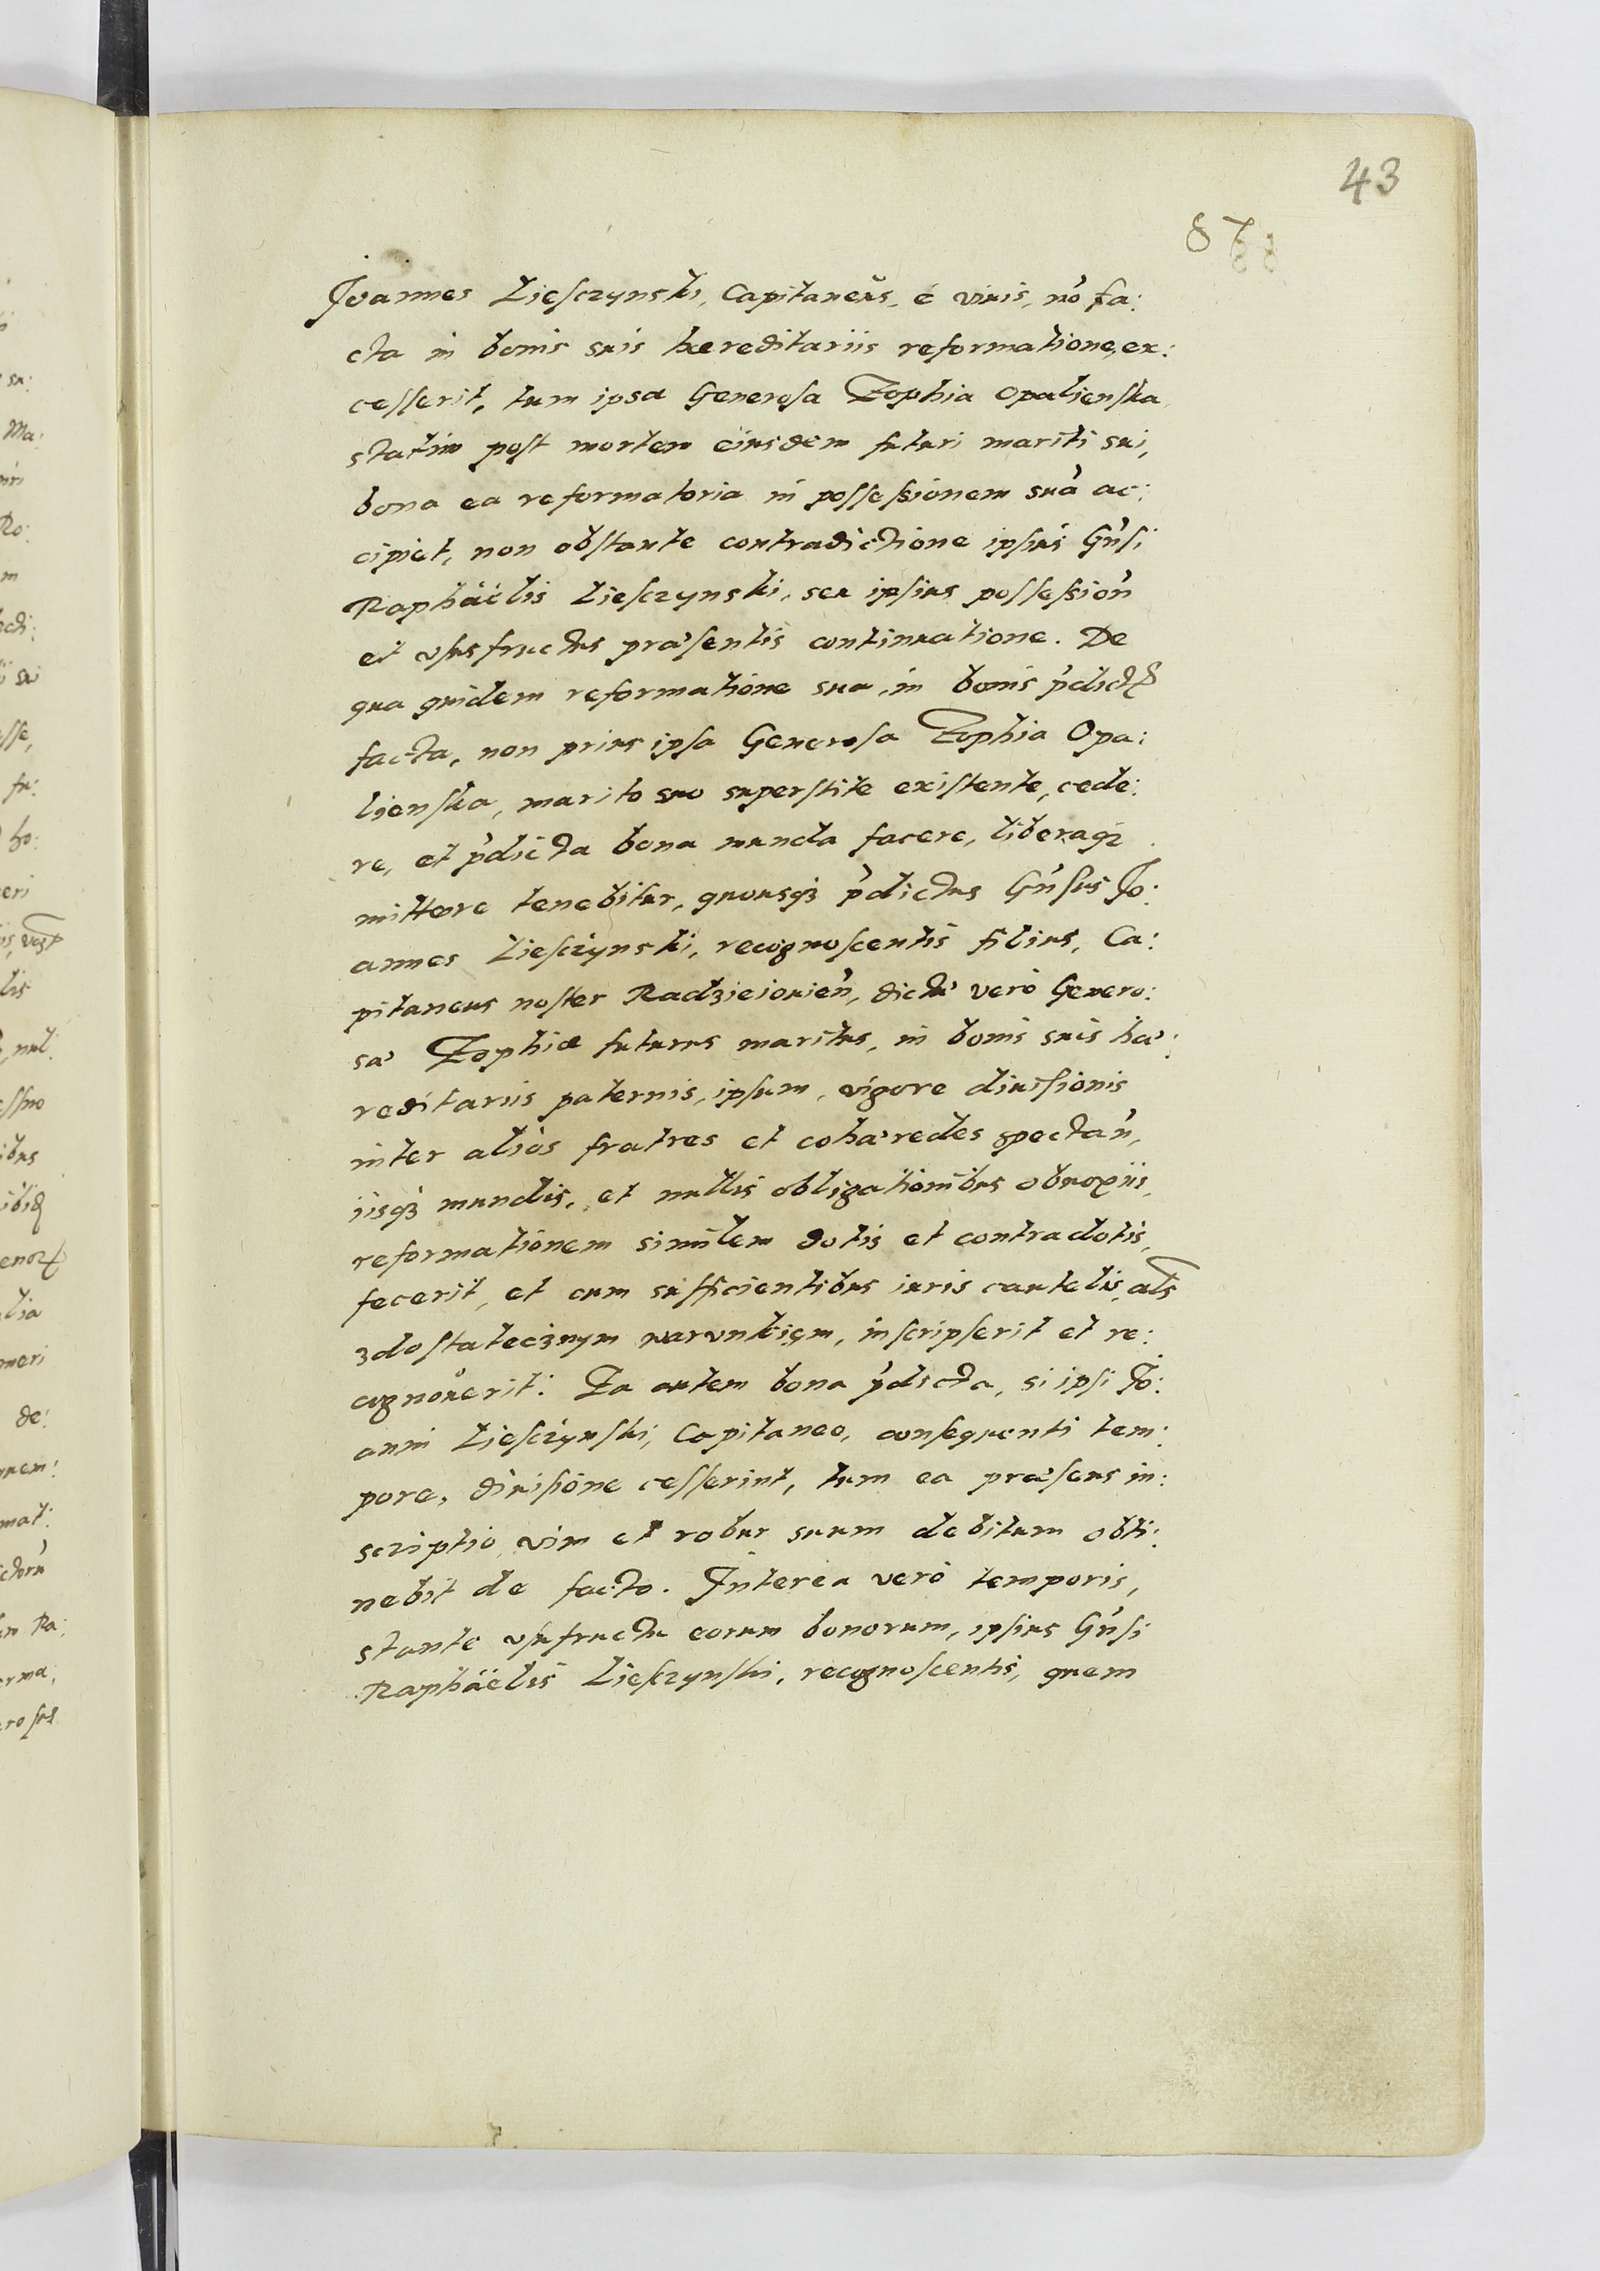 43
87
Joannes Liesczynski, Capitaneus, é viuis, nō fa:
cta in bonis suis hereditariis reformatione, ex:
cesserit, tum ipsa Generosa Zophia Opalienska
statim post mortem eiusdem futuri mariti sui,
bona ea reformatoria in possessionem suā ac:
cipiet, non obstante contradictione ipsius Gn̄si
Raphäelis Liesczynski, seu ipsius possession̄
et vsusfructus præsentis continuatione. De
qua quidem reformatione sua, in bonis p̄dictꝝ
facta, non prius ipsa Generosa Zophia Opa:
lienska, marito suo superstite existente, cede:
re, et p̄dicta bona munda facere, liberaqꝫ
mittere tenebitur, quousqꝫ p̄dictus Gn̄sus Jo:
annes Liesczynski, recognoscentis filius, Ca:
pitaneus noster Radzieiouien̄, dictæ verò Genero:
sæ Zophiæ futurus maritus, in bonis suis hæ:
reditariis paternis, ipsum, vigore diuisionis
inter aliòs fratres et cohæredes spectan̄,
iisqꝫ mundis, et nullis obligationibus obnoxiis,
reformationem similem dotis et contradotis,
fecerit, et cum sufficientibus iuris cautelis, als
zdostatecznym warunkiem, inscripserit et re:
cognouerit. Ea autem bona p̄dicta, si ipsi Jo:
anni Liesczynski, Capitaneo, consequenti tem:
pore, diuisione cesserint, tum ea præsens in:
scriptio, vim et robur suum debitum obti:
nebit de facto. Interea verò temporis,
stante vsufructu eorum bonorum, ipsius Gn̄si
Raphäelis Liesczynski, recognoscentis, quem